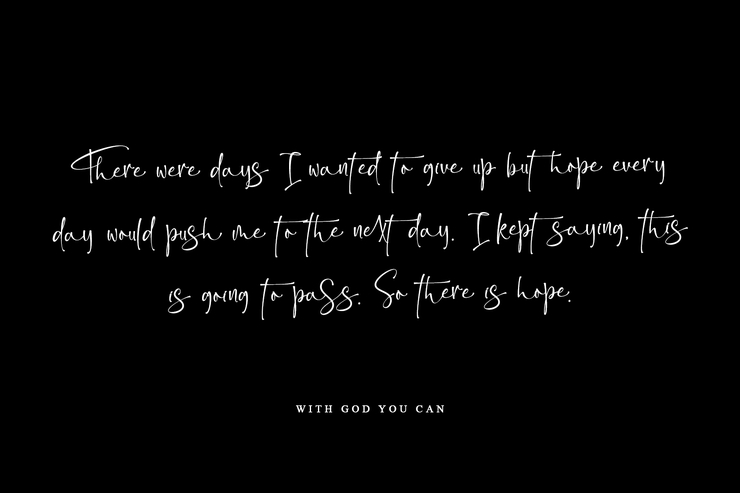 There were days I wanted to give up but hope every
day would push me to the next day. I kept saying, this
is going to pass. So there is hope.
WITH GOD YOU CAN